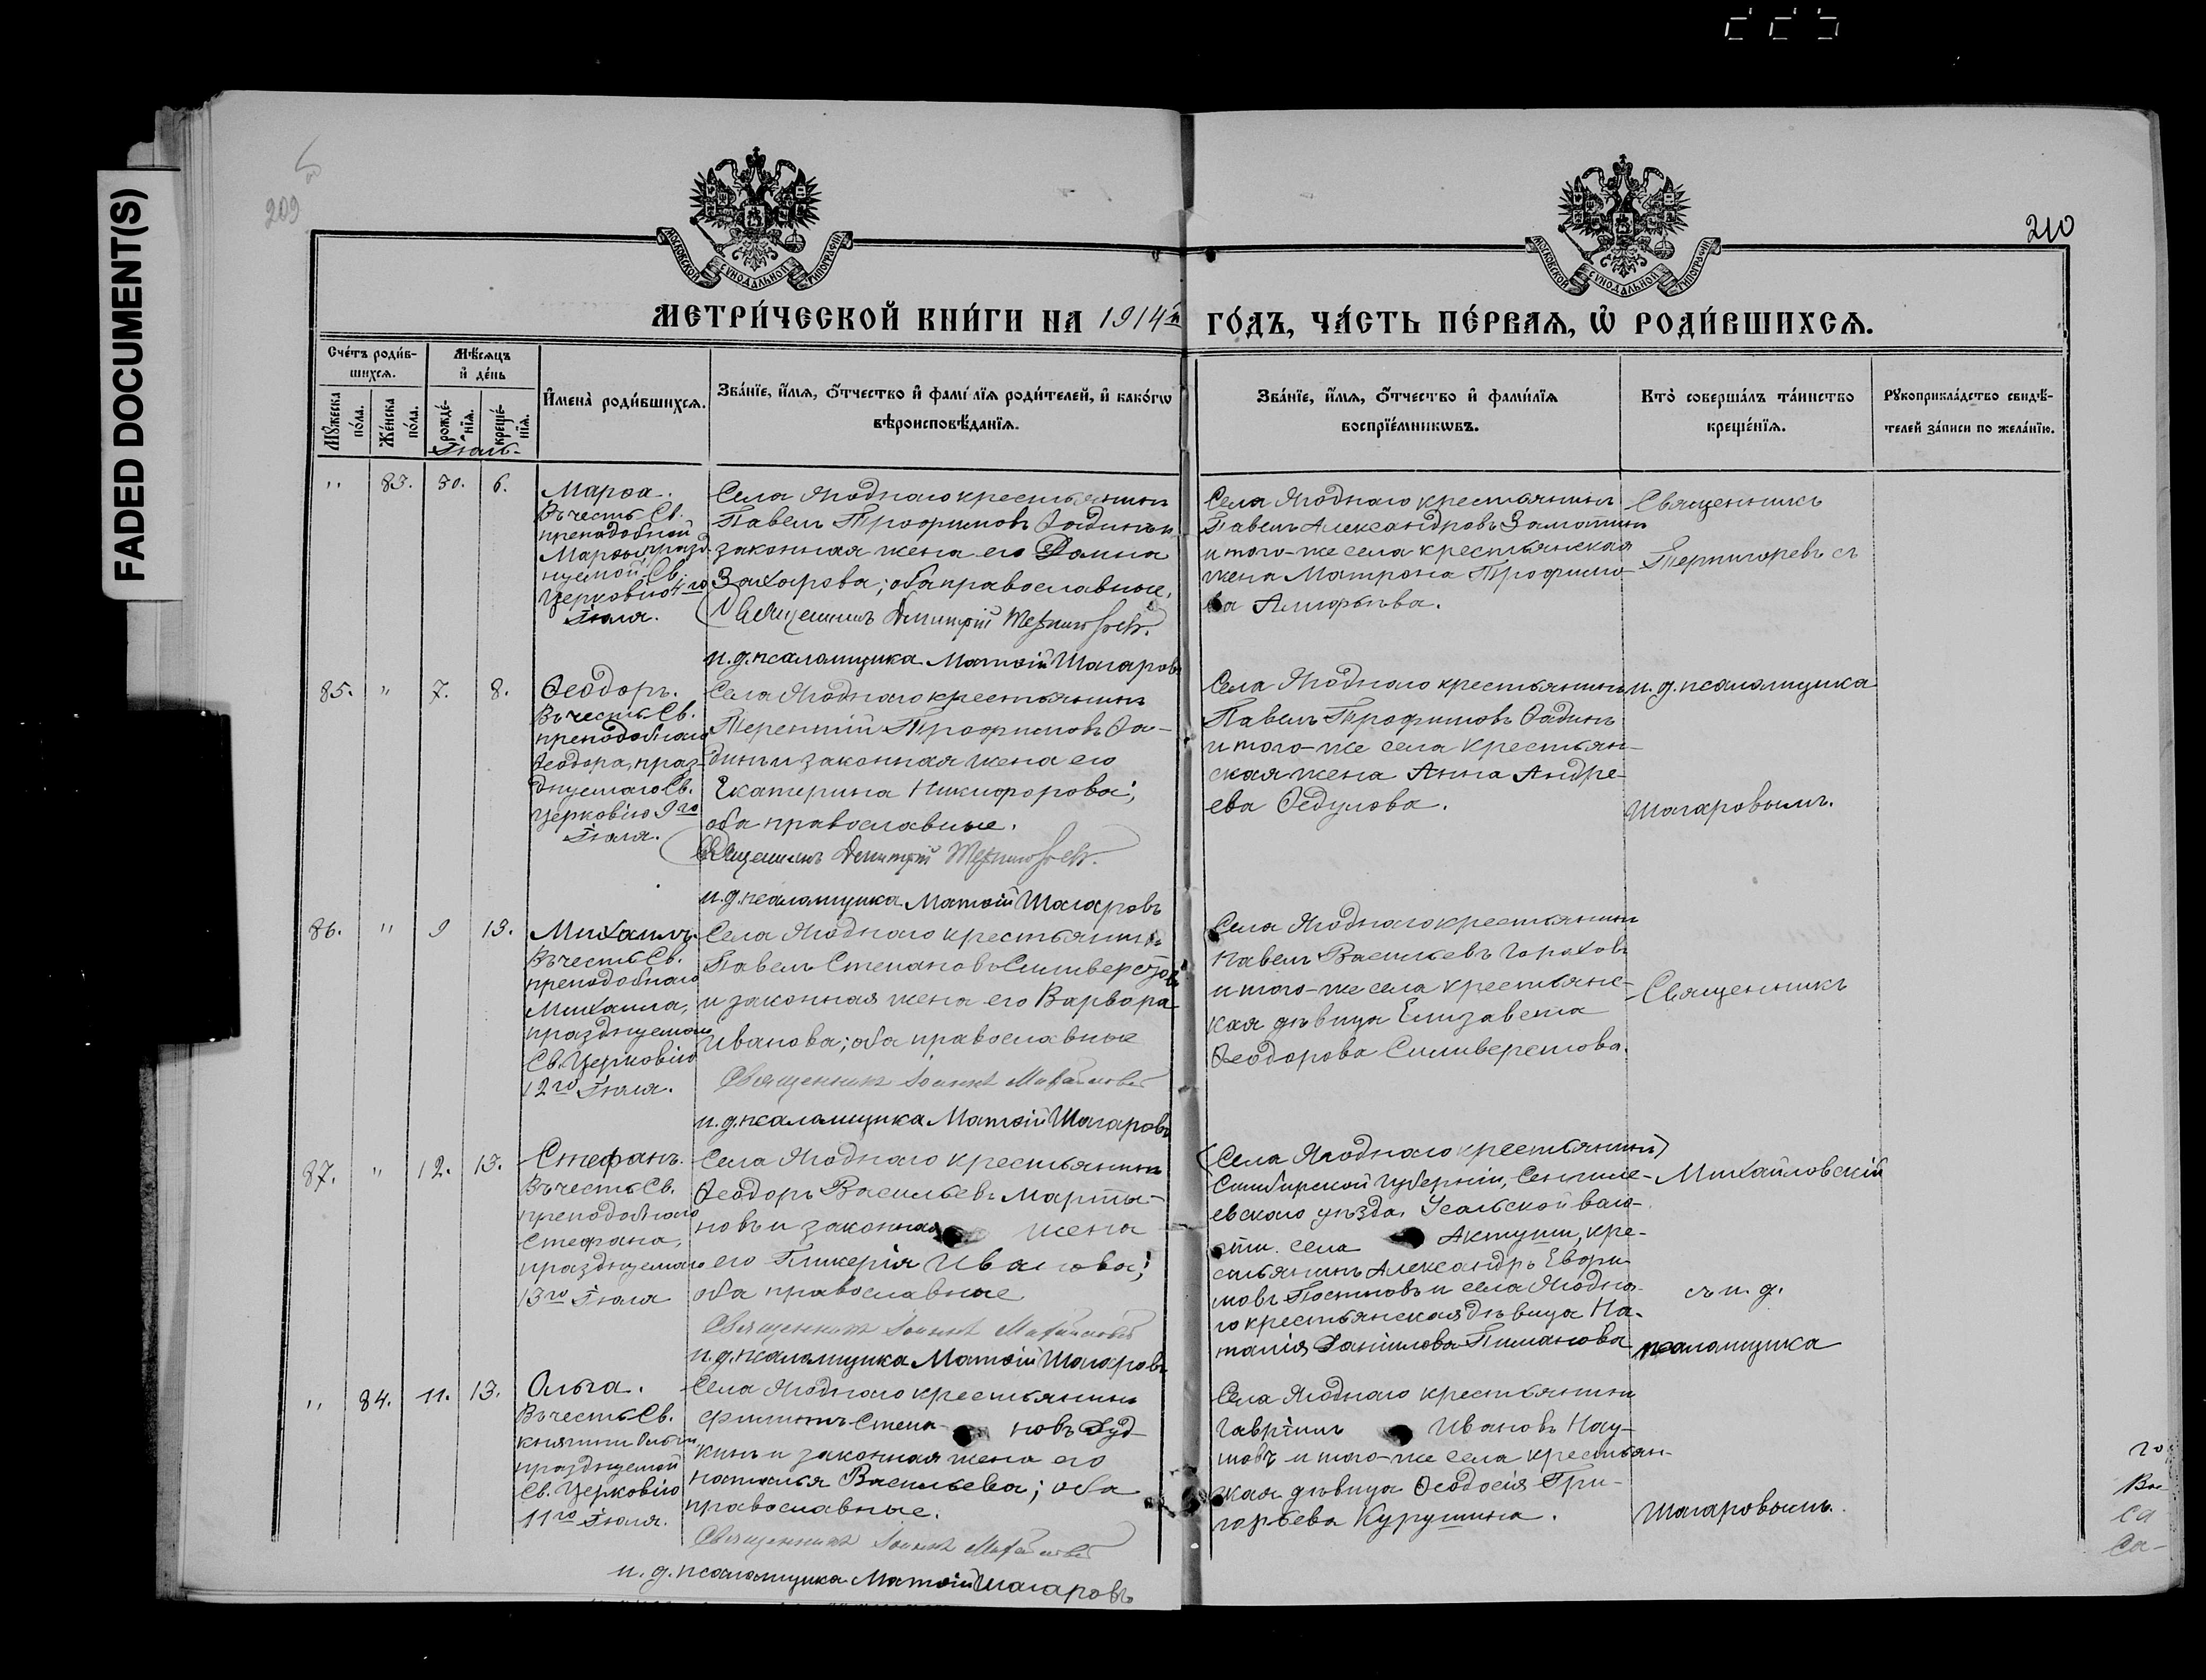 FADED DOCUMENT(S)
209
210
МОСКОВСКОЙ СѴНОДАЛЬНОЙ ТИПОГРАФІИ
МОСКОВСКОЙ СѴНОДАЛЬНОЙ ТИПОГРАФІИ
МЕТРИ́ЧЕСКОЙ КНИ́ГИ НА 1914й ГО́ДЪ, ЧА́СТЬ ПЕ́РВАѦ, Ѡ҆ РОДИ́ВШИХСѦ.
Сче́тъ роди́в-
шихсѧ.
Мꙋ́жеска по́ла.
Же́нска по́ла.
Мѣ́сѧцъ
и҆ де́нь
рожде́-
нїѧ.
креще́-
нїѧ.
Іюль
И҆мена̀ роди́вшихсѧ.
Зва́нїе, и҆́мѧ, ѻ҆́тчество и҆ фамі́лїѧ роди́телей, и҆ како́гѡ
вѣроисповѣ́данїѧ.
Зва́нїе, и҆́мѧ, ѻ҆́тчество и҆ фами́лїѧ
воспрїе́мникѡвъ.
Кто̀ соверша́лъ та́инство
креще́нїѧ.
Рꙋкоприкла́дство свидѣ́-
телей за́писи по жела́нїю.
" 83. 30. 6.
Марѳа.
Въ честь Св.
преподобной
Марѳы, празд-
нуемой Св.
Церковію 4го
Іюля.
Села Ягоднаго крестьянинъ
Павелъ Трофимовъ Ѳадинъ и
законная жена его Домна
Захарова; оба православные.
Священникъ Димитрій Терпигорев.
и.д. псаломщика Матѳій Шагаровъ
Села Ягоднаго крестьянинъ
Павелъ Александровъ Заматинъ
и того-же села крестьянская
жена Матрона Трофимо-
ва
Священникъ
Терпигоревъ съ
85. " 7. 8.
Ѳеодоръ.
Въ честь Св.
преподобнаго
Ѳеодора, праз-
днуемаго Св.
Церковію 9го
Іюля.
Села Ягоднаго крестьянинъ
Терентій Трофимовъ Ѳа-
динъ и законная жена его
Екатерина Никифорова;
оба православные.
Священникъ Димитрій Терпигорев.
и.д. псаломщика Матѳій Шагаровъ
Села Ягоднаго крестьянинъ
Павелъ Трофимовъ Ѳадинъ
и того-же села крестьян-
ская жена Анна Андре-
ева Ѳедулова.
и.д. псаломщика
Шагаровымъ.
86. " 9 13.
Михаилъ.
Въ честь Св.
преподобнаго
Михаила,
празднуемаго
Св. Церковію
12го Іюля.
Села Ягоднаго крестьянинъ
Павелъ Степановъ Сильверстовъ
и законная жена его Варвара
Иванова; оба православные
Священникъ Іоаннъ Михайловскій
и.д. псаломщика Матѳій Шагаровъ
Села Ягоднаго крестьянинъ
Павелъ Васильевъ Гороховъ
и того-же села крестьянс-
кая дѣвица Елизавета
Ѳеодорова Сильверстова.
Священникъ
87. " 12. 13.
Стефанъ.
Въ честь Св.
преподобнаго
Стефана,
празднуемаго
13го Іюля
Села Ягоднаго крестьянинъ
Ѳеодоръ Васильевъ Марты-
новъ и законная жена
его Гликерія Иванова;
оба православные
Священникъ Іоаннъ Михайловскій
и.д. псаломщика Матѳій Шагаровъ
(Села Ягоднаго крестьянинъ)
Симбирской губерніи, Сенгиле-
евскаго уѣзда, Усольской воло-
сти. села Актуши, кре-
стьянинъ Александръ Евфи-
мовъ Постновъ и села Ягодна-
го крестьянская дѣвица На-
талія Даніилова Пиманова
Михайловскій
съ и.д.
псаломщика
" 84. 11. 13.
Ольга.
Въ честь Св.
княгини Ольги,
празднуемой
Св. Церковію
11го Іюля.
Села Ягоднаго крестьянинъ
Филиппъ Степановъ Дуд-
кинъ и законная жена его
Наталья Васильева; оба
православные.
Священникъ Іоаннъ Михайловскій
и.д. псаломщика Матѳій Шагаровъ
Села Ягоднаго крестьянинъ
Гавріилъ Ивановъ Нау-
мовъ и того-же села крестьян-
ская дѣвица Ѳеодосія Гри-
горьева Курушина.
Шагаровымъ.